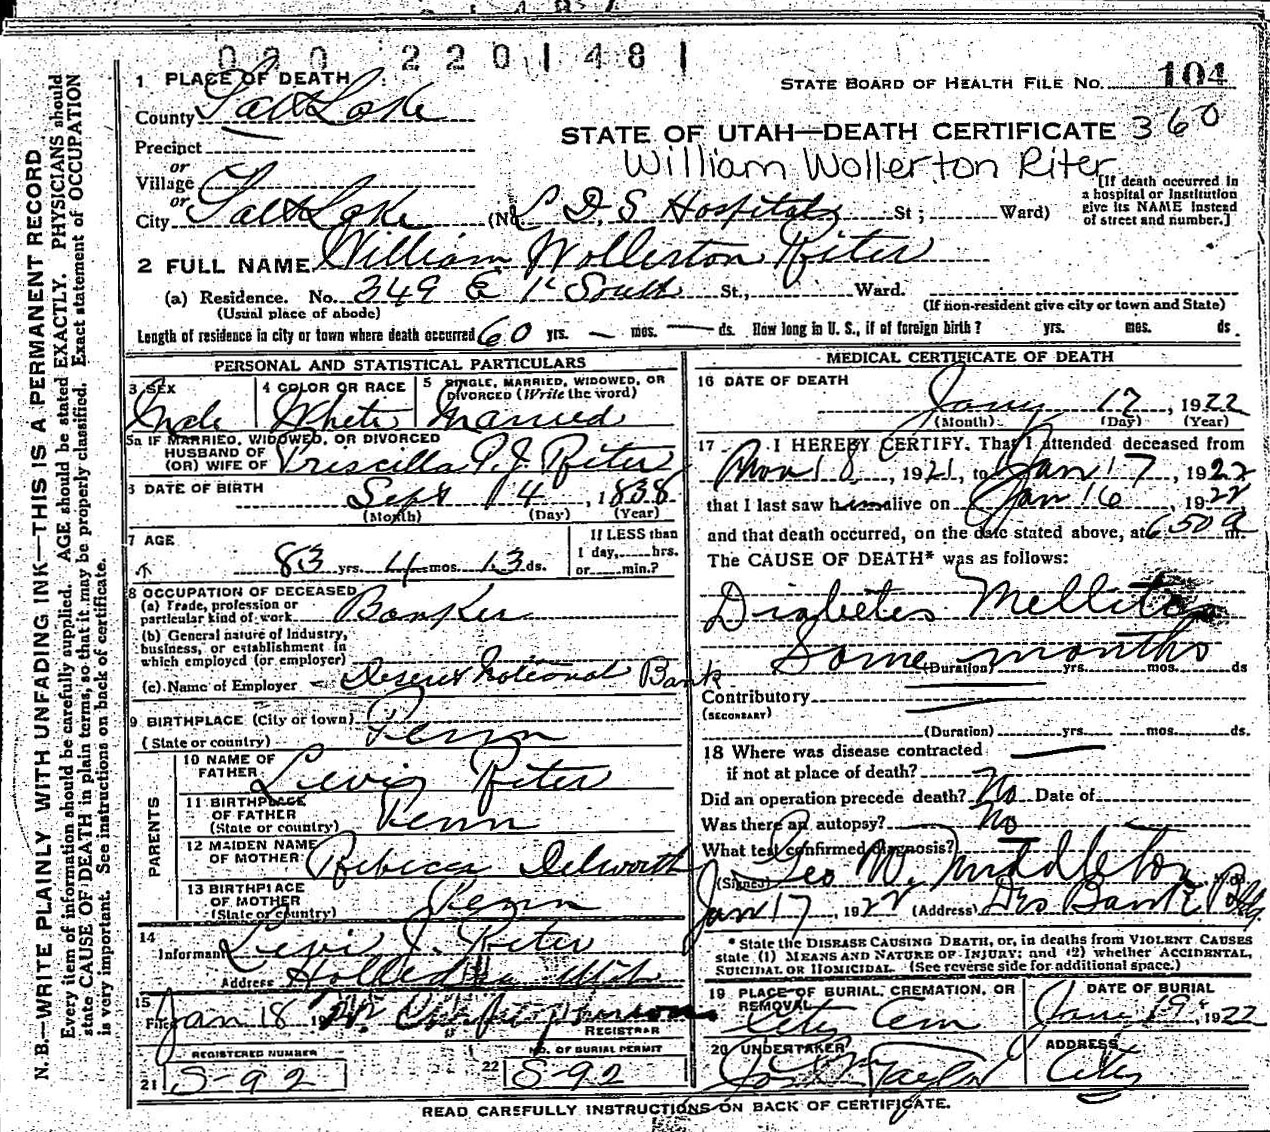 020 220148
1 PLACE OF DEATH
STATE BOARD OF HEALTH FILE No. 104
County Salt Lake
STATE OF UTAH—DEATH CERTIFICATE 360
Precinct
William Wollerton Riter
or
Village
or
City Salt Lake (No L D S Hospital St; Ward)
[If death occurred in
a hospital or institution
give its NAME instead
of street and number.]
2 FULL NAME William Wollerton Riter
(a) Residence. No. 349 E 1st South St., Ward.
(Usual place of abode) (If non-resident give city or town and State)
Length of residence in city or town where death occurred 60 yrs. — mos. — ds. How long in U. S., if of foreign birth? yrs. mos. ds.
PERSONAL AND STATISTICAL PARTICULARS
3 SEX 4 COLOR OR RACE 5 SINGLE, MARRIED, WIDOWED, OR
DIVORCED (Write the word)
Male White Married
5a IF MARRIED, WIDOWED, OR DIVORCED
HUSBAND OF
(OR) WIFE OF Priscilla P. J. Riter
6 DATE OF BIRTH Sept 4, 1838
(Month) (Day) (Year)
7 AGE 83 yrs. 4 mos. 13 ds.
If LESS than
1 day, hrs.
or min.?
8 OCCUPATION OF DECEASED
(a) Trade, profession or
particular kind of work Banker
(b) General nature of Industry,
business, or establishment in
which employed (or employer)
(c) Name of Employer Deseret National Bank
9 BIRTHPLACE (City or town)
(State or country) Penn
PARENTS
10 NAME OF
FATHER Levis Riter
11 BIRTHPLACE
OF FATHER
(State or country) Penn
12 MAIDEN NAME
OF MOTHER Rebecca Dilworth
13 BIRTHPLACE
OF MOTHER
(State or country) Penn
14
Informant Levi J. Riter
Address
15
Filed Jan 18
REGISTRAR
REGISTERED NUMBER NO. OF BURIAL PERMIT
21 S-92 22 S-92
MEDICAL CERTIFICATE OF DEATH
16 DATE OF DEATH
Jany 17, 1922
(Month) (Day) (Year)
17 I HEREBY CERTIFY, That I attended deceased from
Nov 18, 1921, to Jan 17, 1922
that I last saw him alive on Jan 16 1922
and that death occurred, on the date stated above, at 6 50 a m.
The CAUSE OF DEATH* was as follows:
Diabetes Mellitus
Some months
(Duration) yrs. mos. ds
Contributory
(SECONDARY)
(Duration) yrs. mos. ds.
18 Where was disease contracted
if not at place of death?
Did an operation precede death? No Date of
Was there an autopsy? No
What test confirmed diagnosis?
(Signed) Geo W. Middleton M.D.
Jan 17, 1922 (Address) Des Bank Bldg.
* State the DISEASE CAUSING DEATH, or, in deaths from VIOLENT CAUSES
state (1) MEANS AND NATURE OF INJURY; and (2) whether ACCIDENTAL,
SUICIDAL OR HOMICIDAL. (See reverse side for additional space.)
19 PLACE OF BURIAL, CREMATION, OR
REMOVAL
City Cem
DATE OF BURIAL
Jany 19, 1922
20 UNDERTAKER
Jos Wm Taylor
ADDRESS
City
READ CAREFULLY INSTRUCTIONS ON BACK OF CERTIFICATE.
N. B.—WRITE PLAINLY WITH UNFADING INK—THIS IS A PERMANENT RECORD
Every item of information should be carefully supplied. AGE should be stated EXACTLY. PHYSICIANS should
state CAUSE OF DEATH in plain terms, so that it may be properly classified. Exact statement of OCCUPATION
is very important. See instructions on back of certificate.